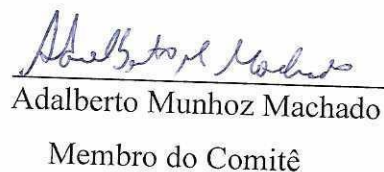 Adalberto M Machado
Adalberto Munhoz Machado
Membro do Comitê